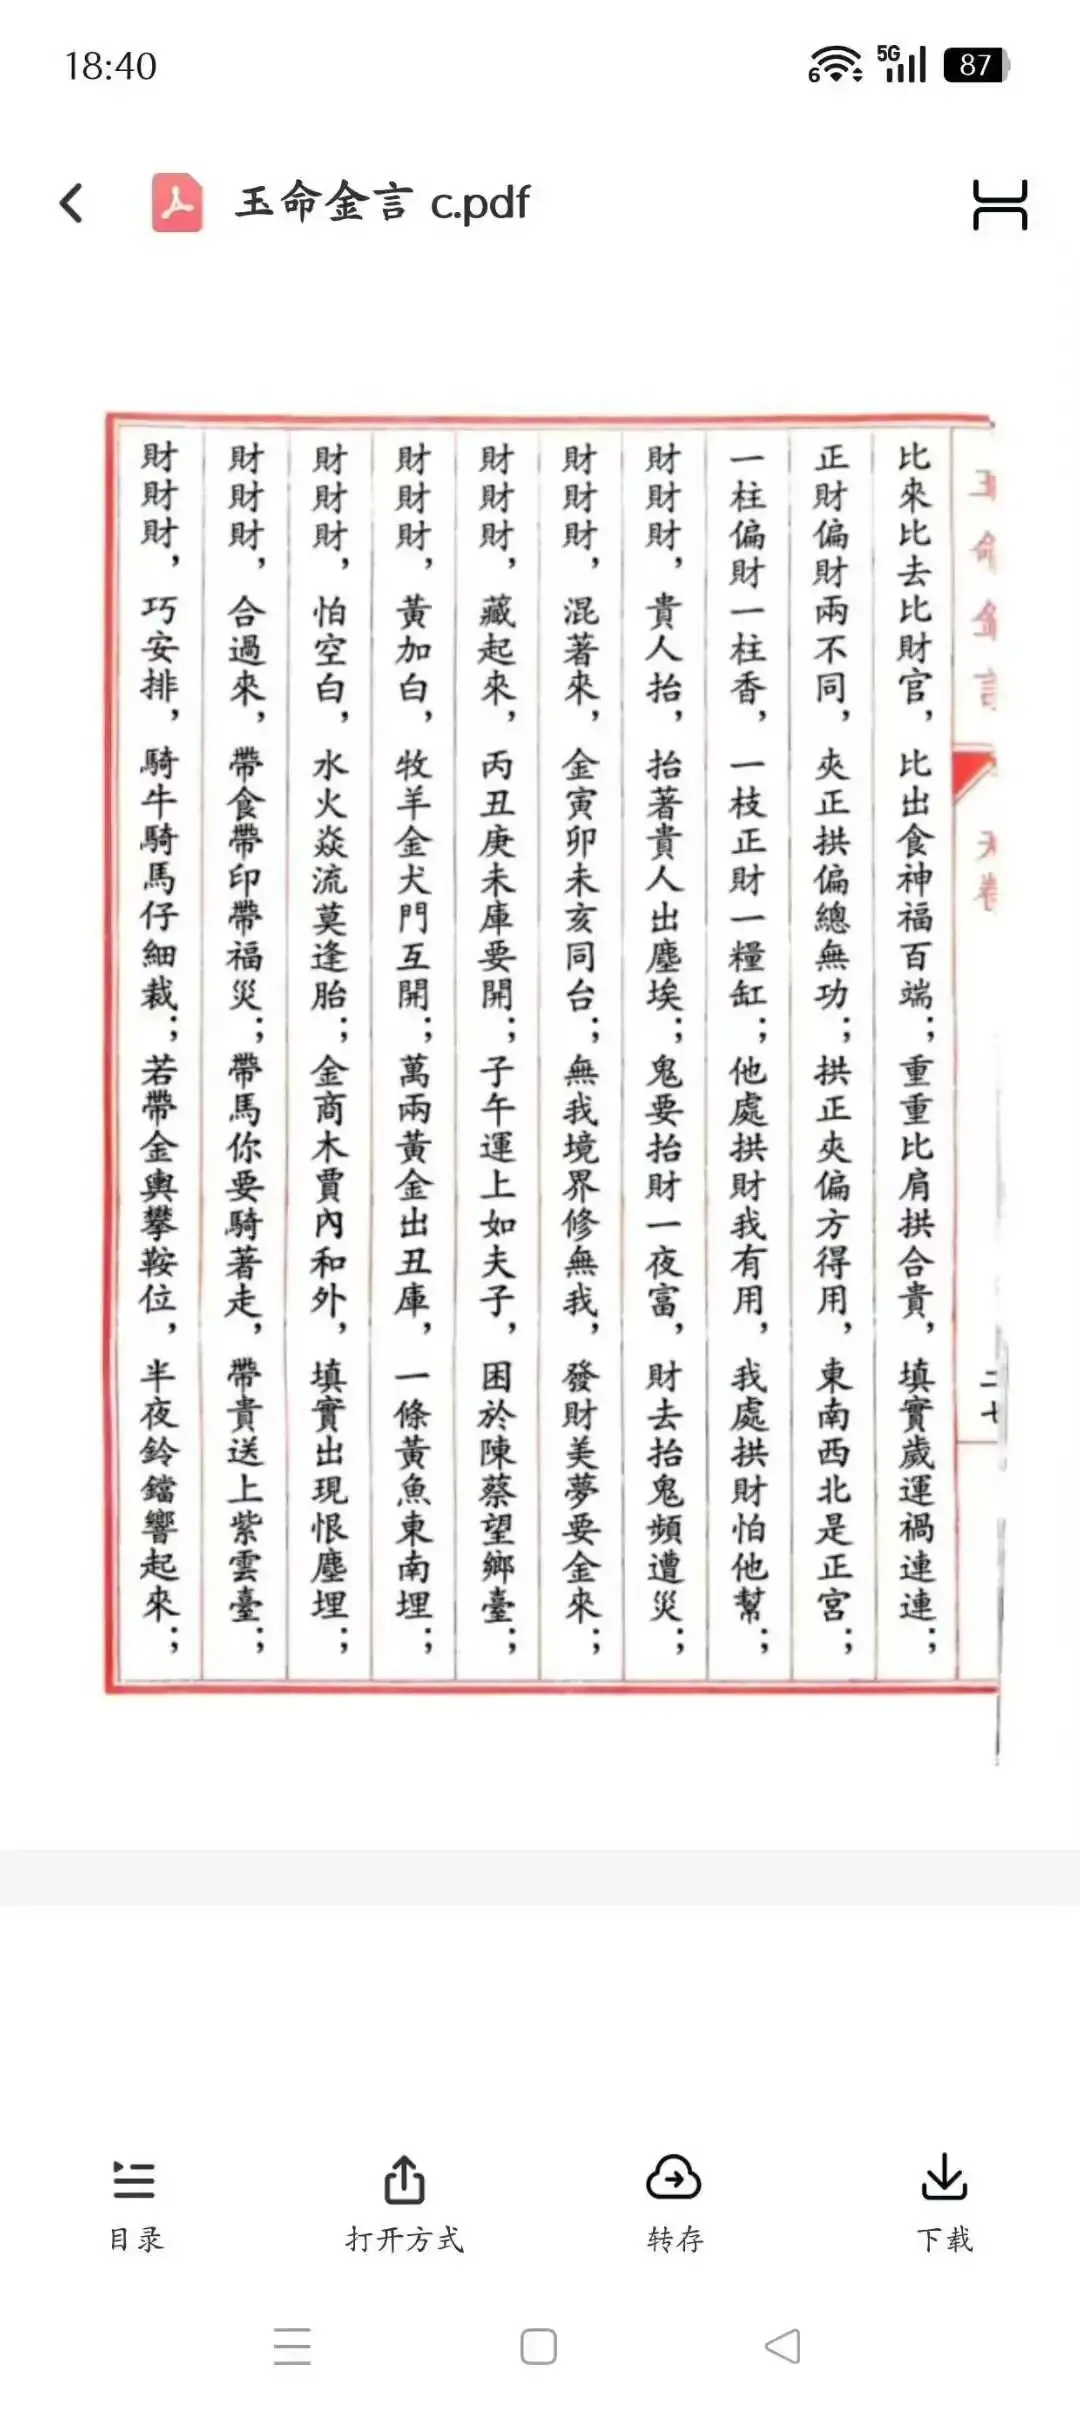 18:40
6 5G 87
玉命金言 c.pdf
玉命金言
天卷
二七
比來比去比財官，比出食神福百端；重重比肩拱合貴，填實歲運禍連連；
正財偏財兩不同，夾正拱偏總無功；拱正夾偏方得用，東南西北是正宮；
一柱偏財一柱香，一枝正財一糧缸；他處拱財我有用，我處拱財怕他幫；
財財財，貴人抬，抬著貴人出塵埃；鬼要抬財一夜富，財去抬鬼頻遭災；
財財財，混著來，金寅卯未亥同台；無我境界修無我，發財美夢要金來；
財財財，藏起來，丙丑庚未庫要開；子午運上如夫子，困於陳蔡望鄉臺；
財財財，黃加白，牧羊金犬門互開；萬兩黃金出丑庫，一條黃魚東南埋；
財財財，怕空白，水火焱流莫逢胎；金商木賈內和外，填實出現恨塵埋；
財財財，合過來，帶食帶印帶福災；帶馬你要騎著走，帶貴送上紫雲臺；
財財財，巧安排，騎牛騎馬仔細裁；若帶金輿攀鞍位，半夜鈴鐺響起來；
目录
打开方式
转存
下载